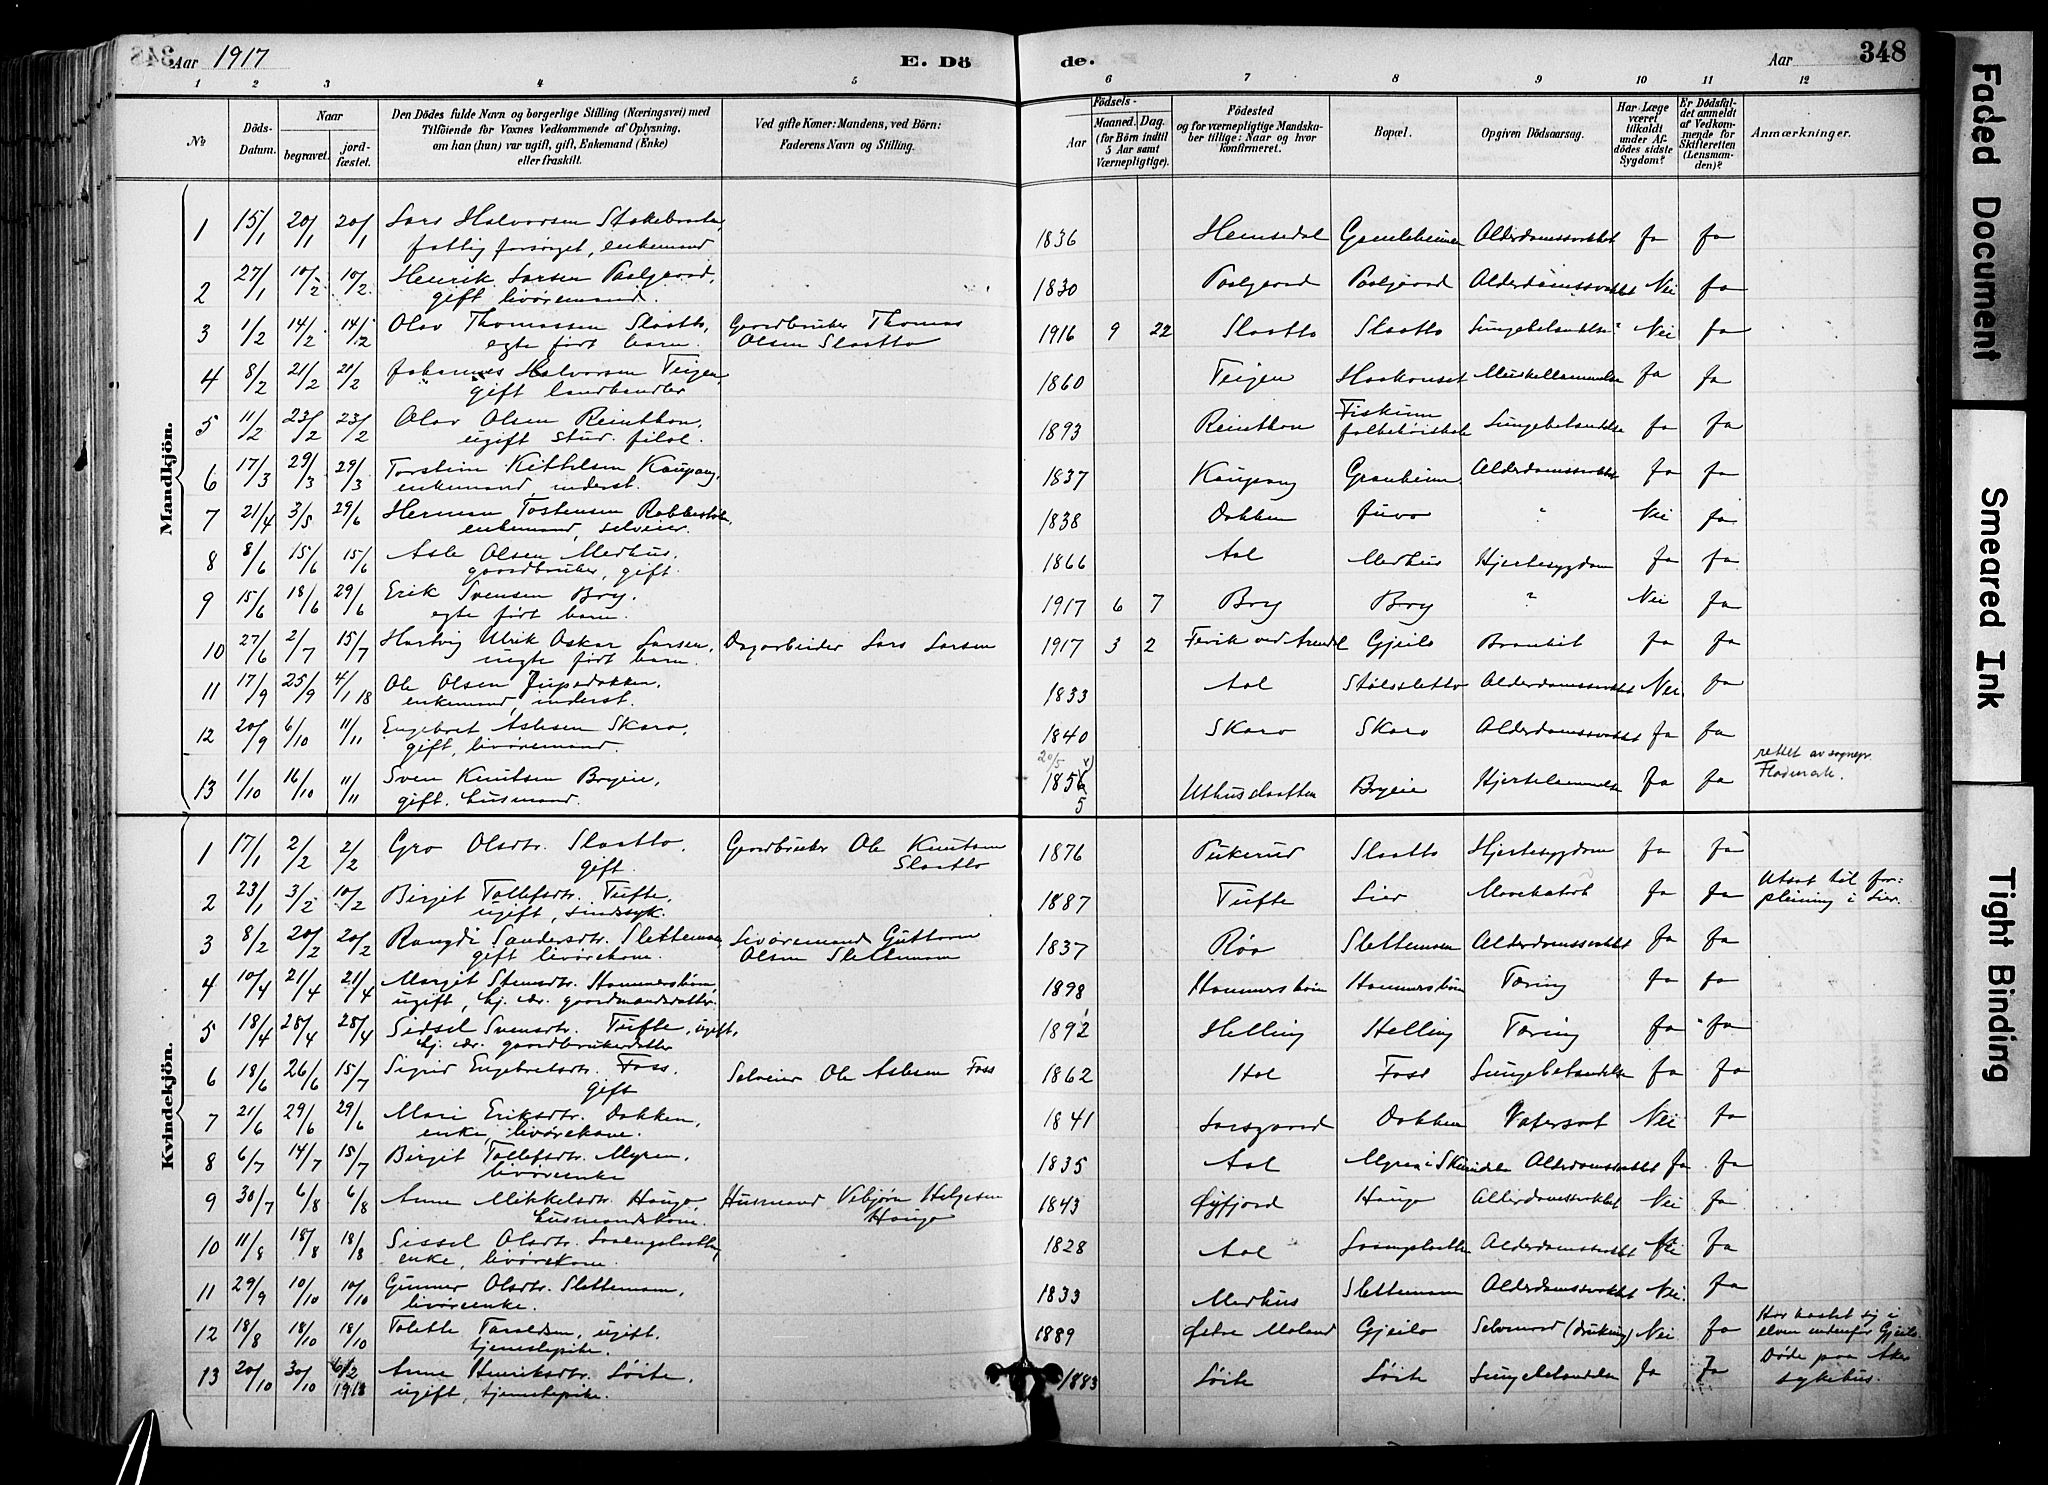 348
Aar 1917
E. Dö
de.
Aar
1 2 3 4 5 6 7 8 9 10 11 12
№
Döds-Datum.
Naar
begravet.
jord-fæstet.
Den Dödes fulde Navn og borgerlige Stilling (Næringsvei) med
Tilföiende for Voxnes Vedkommende af Oplysning,
om han (hun) var ugift, gift, Enkemand (Enke)
eller fraskilt.
Ved gifte Koner: Mandens, ved Börn:
Faderens Navn og Stilling.
Födsels-
Aar
Maaned. Dag.
(for Börn indtil
5 Aar samt
Værnepligtige).
Födested
og for værnepligtige Mandska-
ber tillige: Naar og hvor
konfirmeret.
Bopæl.
Opgiven Dödsaarsag.
Har Læge
været
tilkaldt
under Af-
dödes sidste
Sygdom?
Er Dödsfal-
det anmeldt
af Vedkom-
mende for
Skifteretten
(Lensman-
den)?
Anmærkninger.
Mandkjön.
1 15/1 20/1 20/1 Lars Halvorsen 1836 Hemsedal Alderdomssvakhet Ja Ja
fattig forsørget, enkemand
2 27/1 10/2 10/2 Henrik Larsen Paalgaard, 1830 Paalgaard Paalgaard Alderdomssvakhet Nei Ja
gift livøremand.
3 1/2 14/2 14/2 Olav Thomassen Slaatto, Gaardbruker Thomas 1916 9 22 Slaatto Slaatto Lungebetændelse Nei Ja
egte født barn. Olsen Slaatto
4 8/2 21/2 21/2 Johannes Halvorsen Teigen, 1860 Teigen Haakonset Ja Ja
gift landhandler
5 11/2 23/2 23/2 Olav Olsen Reinton, 1893 Reinton Fiskum Lungebetændelse Ja Ja
ugift stud. filol. folkehøiskole
6 17/3 29/3 29/3 Torstein Kittilsen Kaupang, 1837 Kaupang Alderdomssvakhet Ja Ja
enkemand, inderst.
7 21/4 3/5 29/6 Herman Tostensen 1838 Dokken Juvo " Nei Ja
enkemand, selveier.
8 8/6 15/6 15/6 Asle Olsen Medhus, 1866 Aal Medhus Hjertesygdom Ja Ja
gaardbruker, gift.
9 15/6 18/6 29/6 Erik Svensen Bry. 1917 6 7 Bry Bry ? Nei Ja
egte født barn.
10 27/6 2/7 15/7 Hartvig Ulrik Oskar Larsen, Dagarbeider Lars Larsen 1917 3 2 Fevik ved Arendal Gjeilo Bronkit Ja Ja
uegte født barn.
11 17/9 25/9 4/1 18 Ole Olsen Jupedokken, 1833 Aal Stølssletto Alderdomssvakhet Nei. Ja
enkemand, inderst.
12 20/9 6/10 11/11 Engebret Aslesen Skaro, 1840 Skaro Skaro Alderdomssvakhet Ja Ja
gift, livøremand.
13 1/10 16/10 11/11 Sven Knutsen Bryeie, 20/5 1856 5 Uthusslaatten Bryeie Hjertelammelse Ja Ja rettet av sognepr.
gift. husmand. Flademark.
Kvindekjön.
1 17/1 2/2 2/2 Gro Olsdtr. Slaatto, Gaardbruker Ole Knutsen 1876 Pukerud Slaatto Hjertesygdom Ja Ja
gift. Slaatto
2 23/1 3/2 10/2 Birgit Tollefsdtr. Tufte, 1887 Tufte Lier Mavekatarh Ja Ja Utsat til for-
ugift, sindssyk. pleining i Lier.
3 8/2 20/2 20/2 Rangdi Sandersdtr. Slettemoen, Livøremand Guttorm 1837 Røo Slettemoen Alderdomssvakhet Ja Ja
gift livørekone. Olsen Slettemoen
4 10/4 21/4 21/4 Margit Steinsdtr. Hammersbøen, 1898 Hammersbøen Hammersbøen Tæring Ja Ja
ugift, hj. vær. gaardmandsdatter.
5 18/4 28/4 28/4 Sidsel Svensdtr. Tufte, ugift, 1892 Helling Helling Tæring Ja Ja
hj. vær. gaardbrukerdatter
6 18/6 26/6 15/7 Sigrid Engebretsdtr. Foss, Selveier Ole Aslesen Foss 1862 Hol Foss Lungebetændelse Ja Ja
gift
7 21/6 29/6 29/6 Mari Eriksdtr. Dokken, 1841 Larsgaard Dokken Vatersot Nei Ja
enke, livørekone.
8 6/7 14/7 15/7 Birgit Tollefsdtr. Myren, 1835 Aal Myren i Skurdalen Alderdomssvakhet Ja Ja
livøreenke
9 30/7 6/8 6/8 Anne Mikkelsdtr. Haugo, Husmand Vebjørn Helgesen 1843 Øyfjord Haugo Alderdomssvakhet Nei Ja
husmandskone. Haugo
10 11/8 18/8 18/8 Sissel Olsdtr. 1828 Aal Alderdomssvakhet Nei Ja
enke, livørekone.
11 29/9 10/10 10/10 Gunnor Olsdtr. Slettemoen, 1833 Medhus Slettemoen Alderdomssvakhet Nei. Ja
livøreenke.
12 18/8 18/10 18/10 Tolette Taraldsen, ugift. 1889 Østre Moland Gjeilo Selvmord (drukning) Nei Ja Har kastet sig i
tjenestepike. elven nedenfor Gjeilo.
13 20/10 30/10 6/2 1918 Anne Henriksdtr. Løite, 1883 Løite Løite Lungebetændelse Ja Ja Døde paa Aker
ugift, tjenestepike. sykehus.
Faded Document
Smeared Ink
Tight Binding